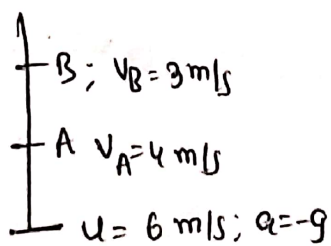 B; VB = 3 m/s
A VA = 4 m/s
u = 6 m/s; a = -g